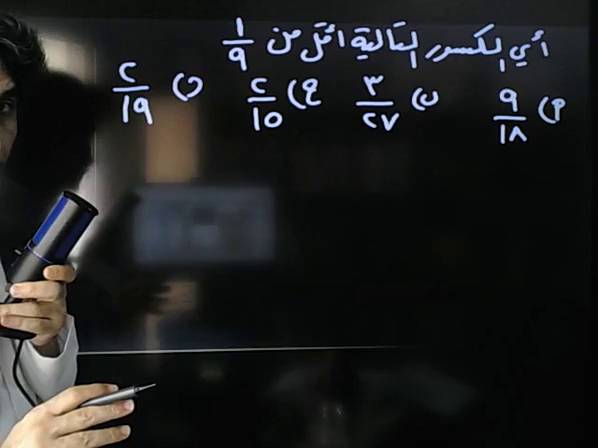 أي الكسور التالية اقل من ١/٩
أ) ٩/١٨ ب) ٣/٢٧ ج) ٢/١٥ د) ٢/١٩